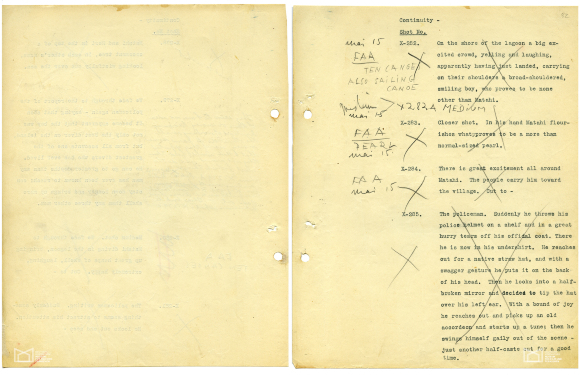 Continuity -
Shot No.
mai 15
FAA
TEN CANOE
ALSO SAILING
CANOE
X-282. On the shore of the lagoon a big ex-
cited crowd, yelling and laughing,
apparently having just landed, carrying
on their shoulders a broad-shouldered,
smiling boy, who proves to be none
other than Matahi.
X 282A MEDIUM
mai 15
FAA
PEARL
mai 15.
X-283. Closer shot. In his hand Matahi flour-
ishes what proves to be a more than
normal-sized pearl.
FAA
mai 15
X-284. There is great excitement all around
Matahi. The people carry him toward
the village. Cut to -
X-285. The policeman. Suddenly he throws his
police helmet on a shelf and in a great
hurry tears off his official coat. There
he is now in his undershirt. He reaches
out for a native straw hat, and with a
swagger gesture he puts it on the back
of his head. Then he looks into a half-
broken mirror and decides to tip the hat
over his left ear. With a bound of joy
he reaches out and picks up an old
accordeon and starts up a tune; then he
swings himself gaily out of the scene -
just another half-caste out for a good
time.